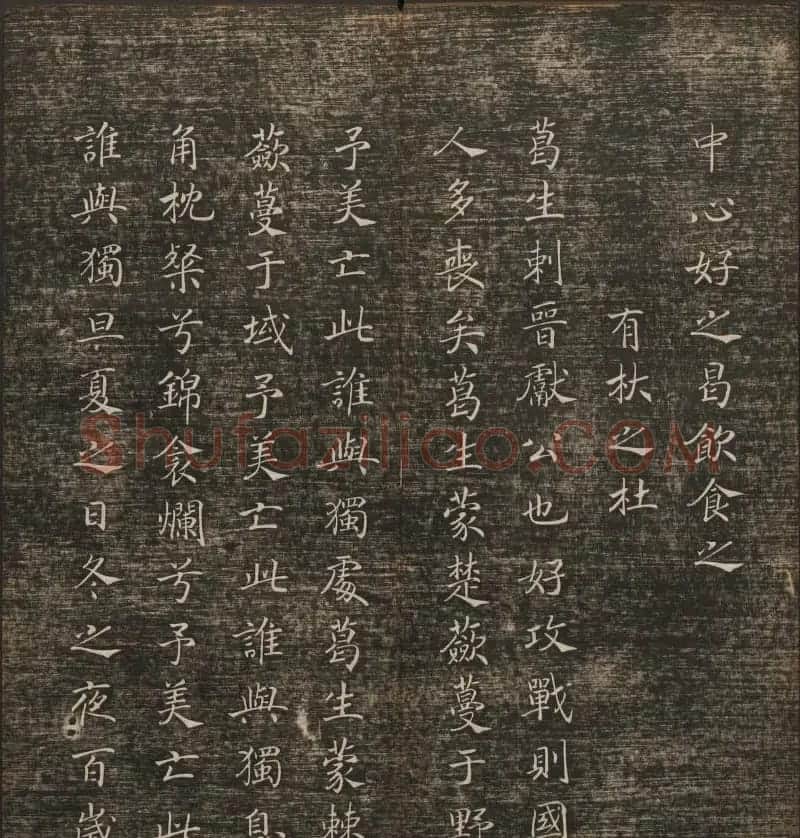 中心好之曷飲食之
有杕之杜
葛生刺晉獻公也好攻戰則國
人多喪矣葛生蒙楚蘞蔓于野
予美亡此誰與獨處葛生蒙棘
蘞蔓于域予美亡此誰與獨息
角枕粲兮錦衾爛兮予美亡此
誰與獨旦夏之日冬之夜百歲
Shufaziliao.COM